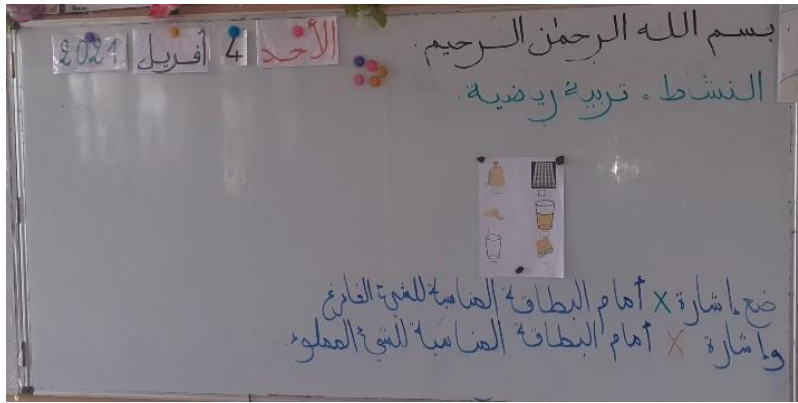 بسم الله الرحمٰن الرحيم.
الأحد 4 أفريل 2021
النشاط: تربية رياضية.
ضع إشارة X أمام البطاقة المناسبة للشيء الفارغ
وإشارة X أمام البطاقة المناسبة للشيء المملوء.